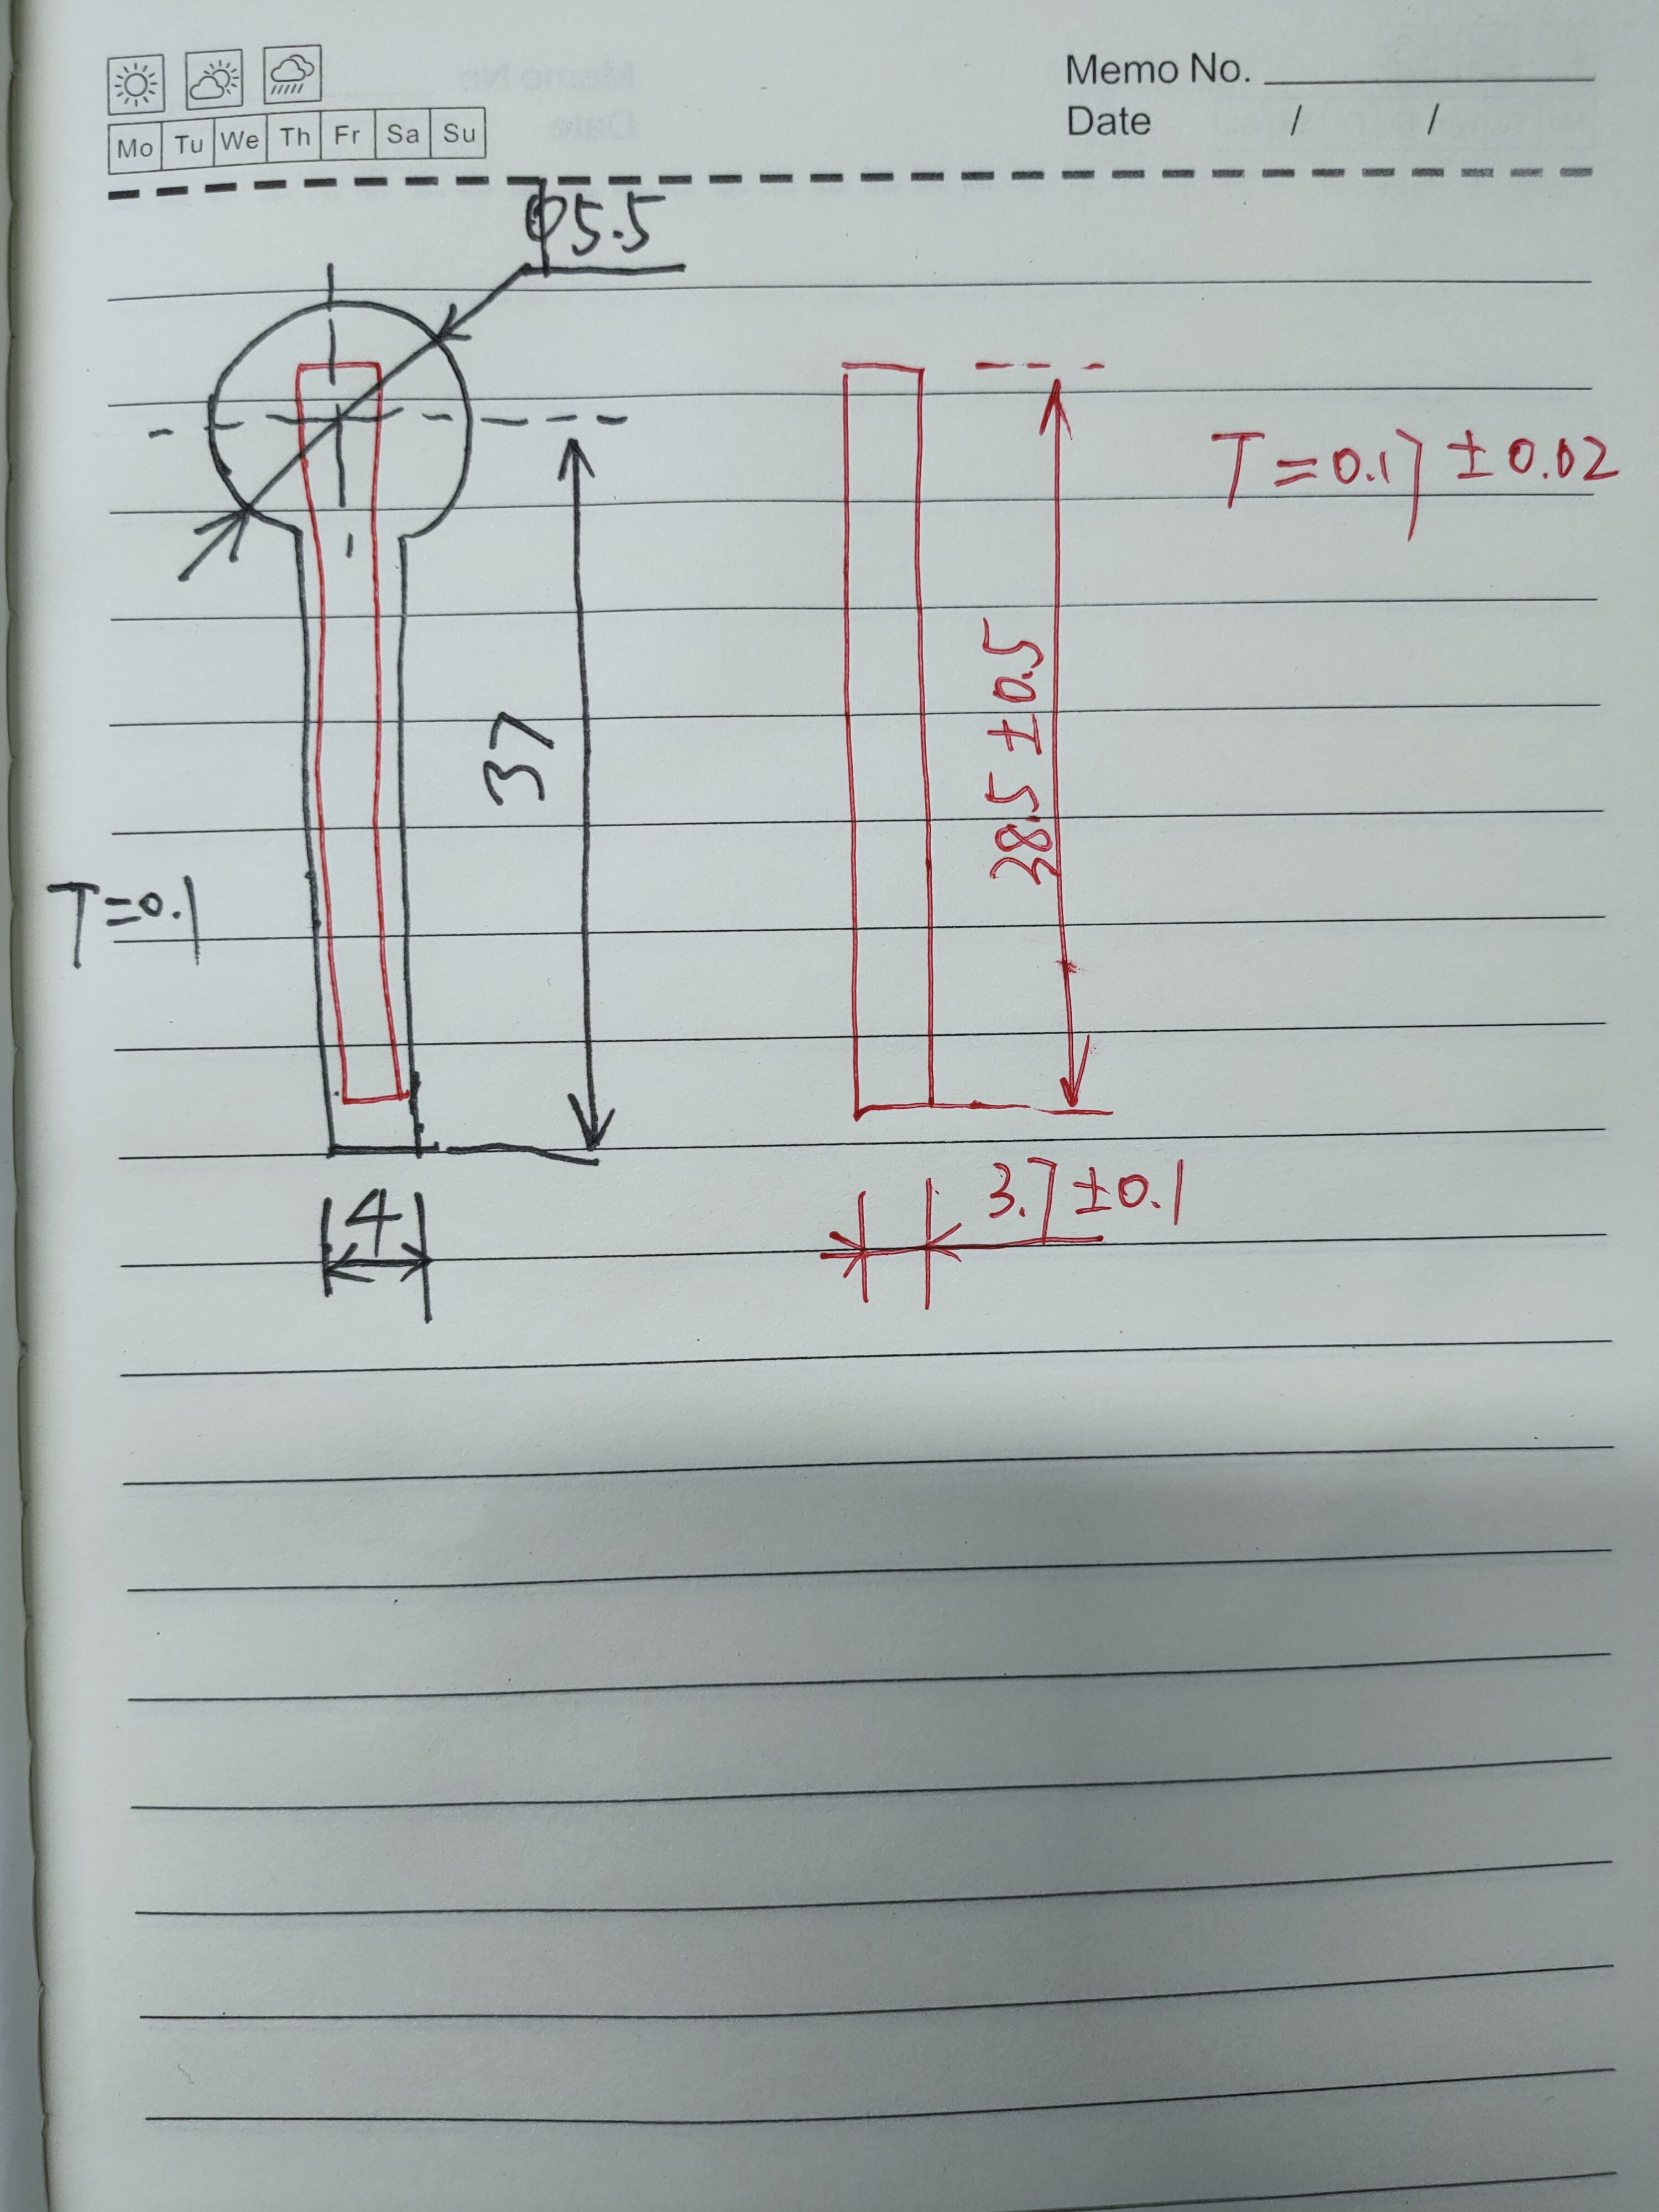 Memo No.
Mo Tu We Th Fr Sa Su
Date / /
φ5.5
T=0.17±0.02
38.5±0.5
37
T=0.1
3.7±0.1
4